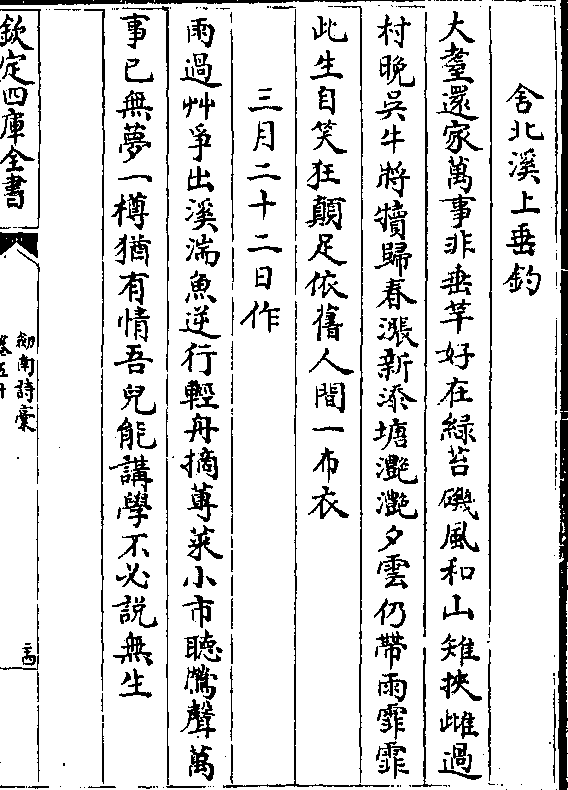 舍北溪上垂釣
大耋還家萬事非垂竿好在緑苔磯風和山雉挾雌過
村晚吳牛將犢歸春漲新添塘灔灔夕雲仍帶雨霏霏
此生自笑狂顛足依舊人間一布衣
三月二十二日作
雨過艸爭出溪湍魚逆行輕舟摘蓴菜小市聴鶯聲萬
事已無夢一樽猶有情吾兒能講學不必説無生
欽定四庫全書
劒南詩藁
卷五十